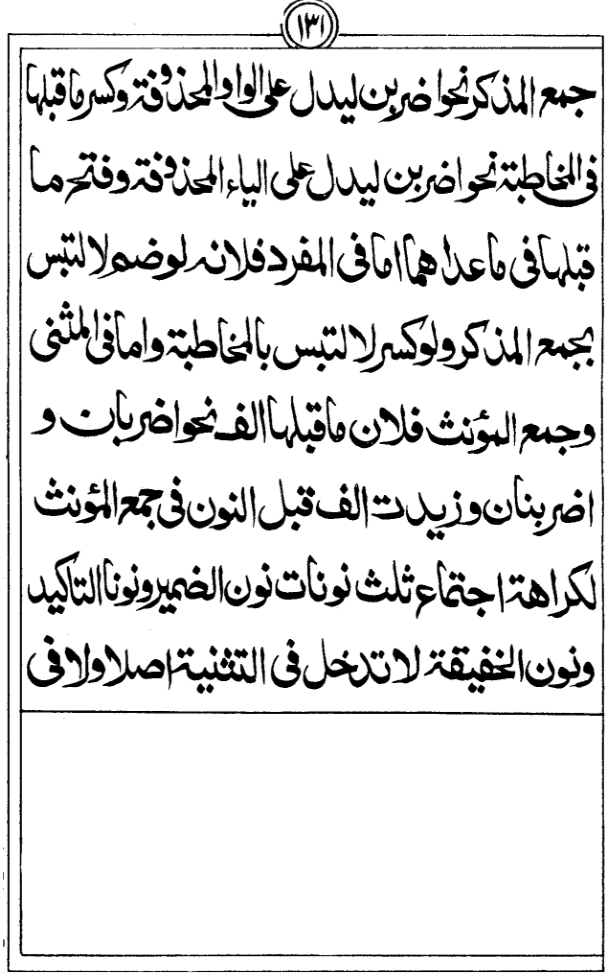 ١٣١
جمع المذكر نحو اضربن ليدل على الواو المحذوفة وكسر ما قبلها
فى المخاطبة نحو اضربن ليدل على الياء المحذوفة وفتح ما
قبلها فى ما عداهما اما فى المفرد فلانه لوضم لالتبس
بجمع المذكر ولو كسر لالتبس بالمخاطبة واما فى المثنى
وجمع المؤنث فلان ما قبلها الف نحو اضربان و
اضربنان وزيدت الف قبل النون فى جمع المؤنث
لكراهة اجتماع ثلث نونات نون الضمير ونونا التاكيد
ونون الخفيفة لا تدخل فى التثنية اصلا ولا فى